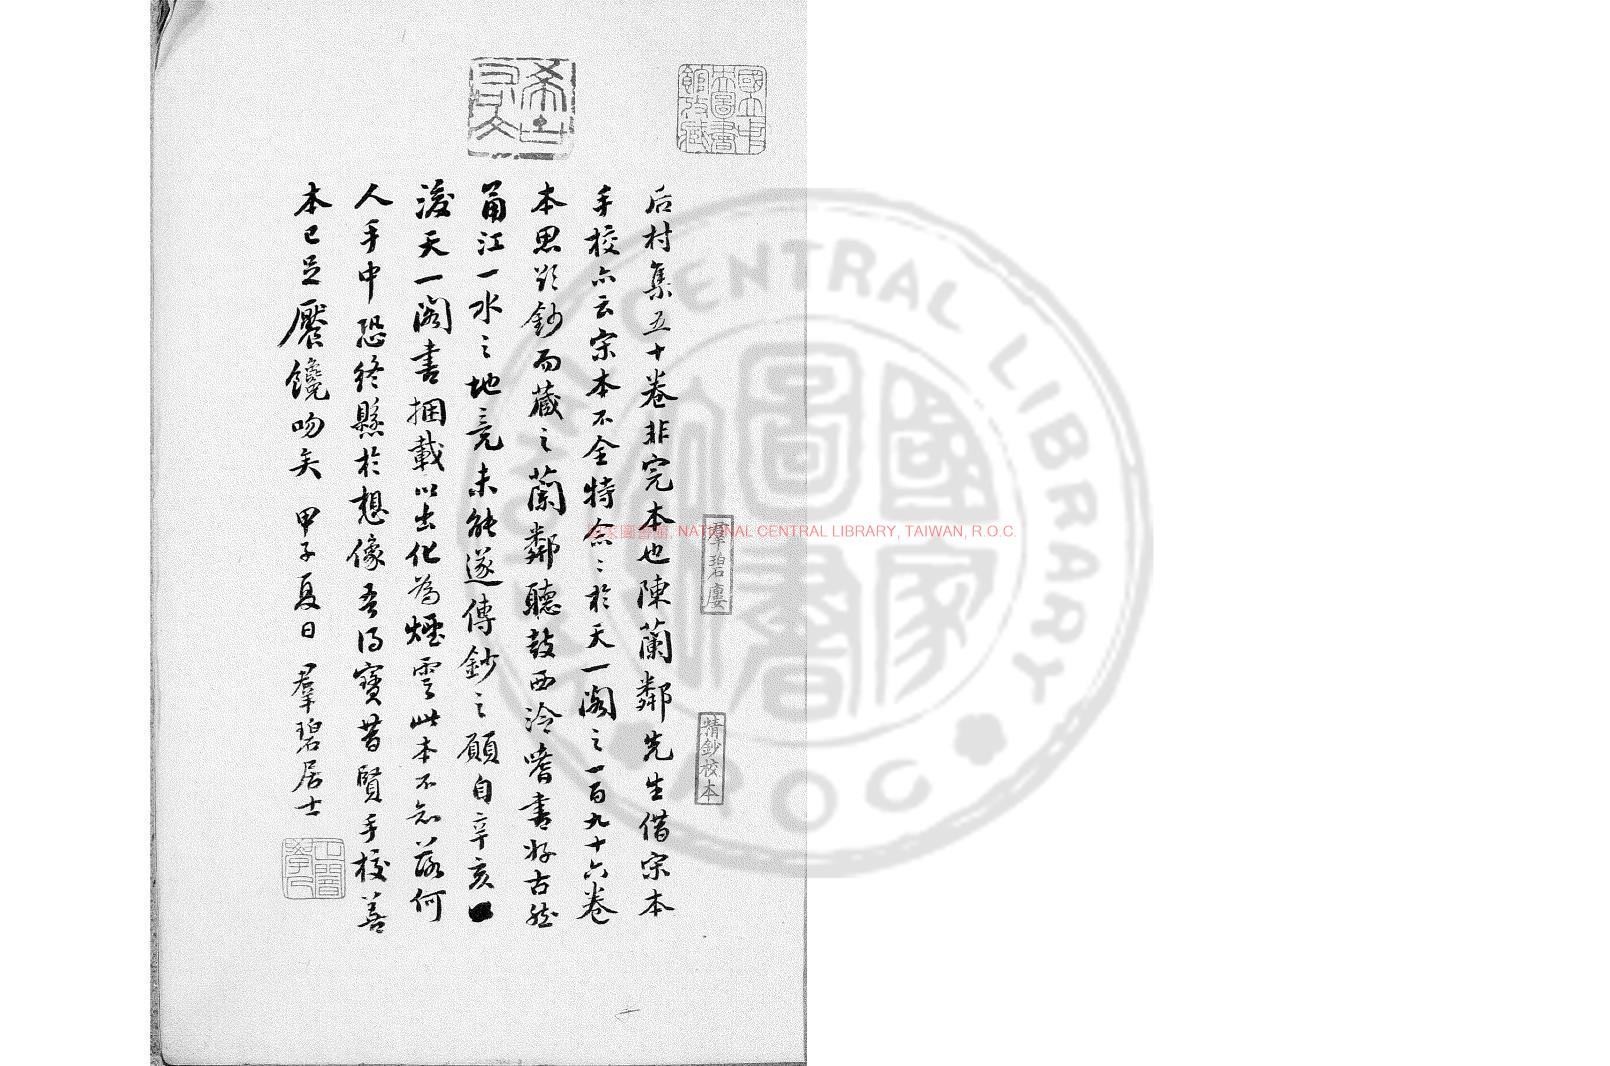 國立中央圖書館收藏
羣碧廔
精鈔校本
后村集五十卷非完本也陳蘭鄰先生借宋本
手校亦云宋本不全特念念於天一閣之一百九十六卷
本思欲鈔而藏之蘭鄰聽鼓西泠嗜書好古然
甬江一水之地竟未能遂傳鈔之願自辛亥
後天一閣書捆載以出化為煙雲此本不知落何
人手中恐終懸於想像吾得寶昔賢手校善
本已足饜饞吻矣 甲子夏日 羣碧居士
國家圖書館, NATIONAL CENTRAL LIBRARY, TAIWAN, R.O.C.
NATIONAL CENTRAL LIBRARY
ROC
國家圖書館